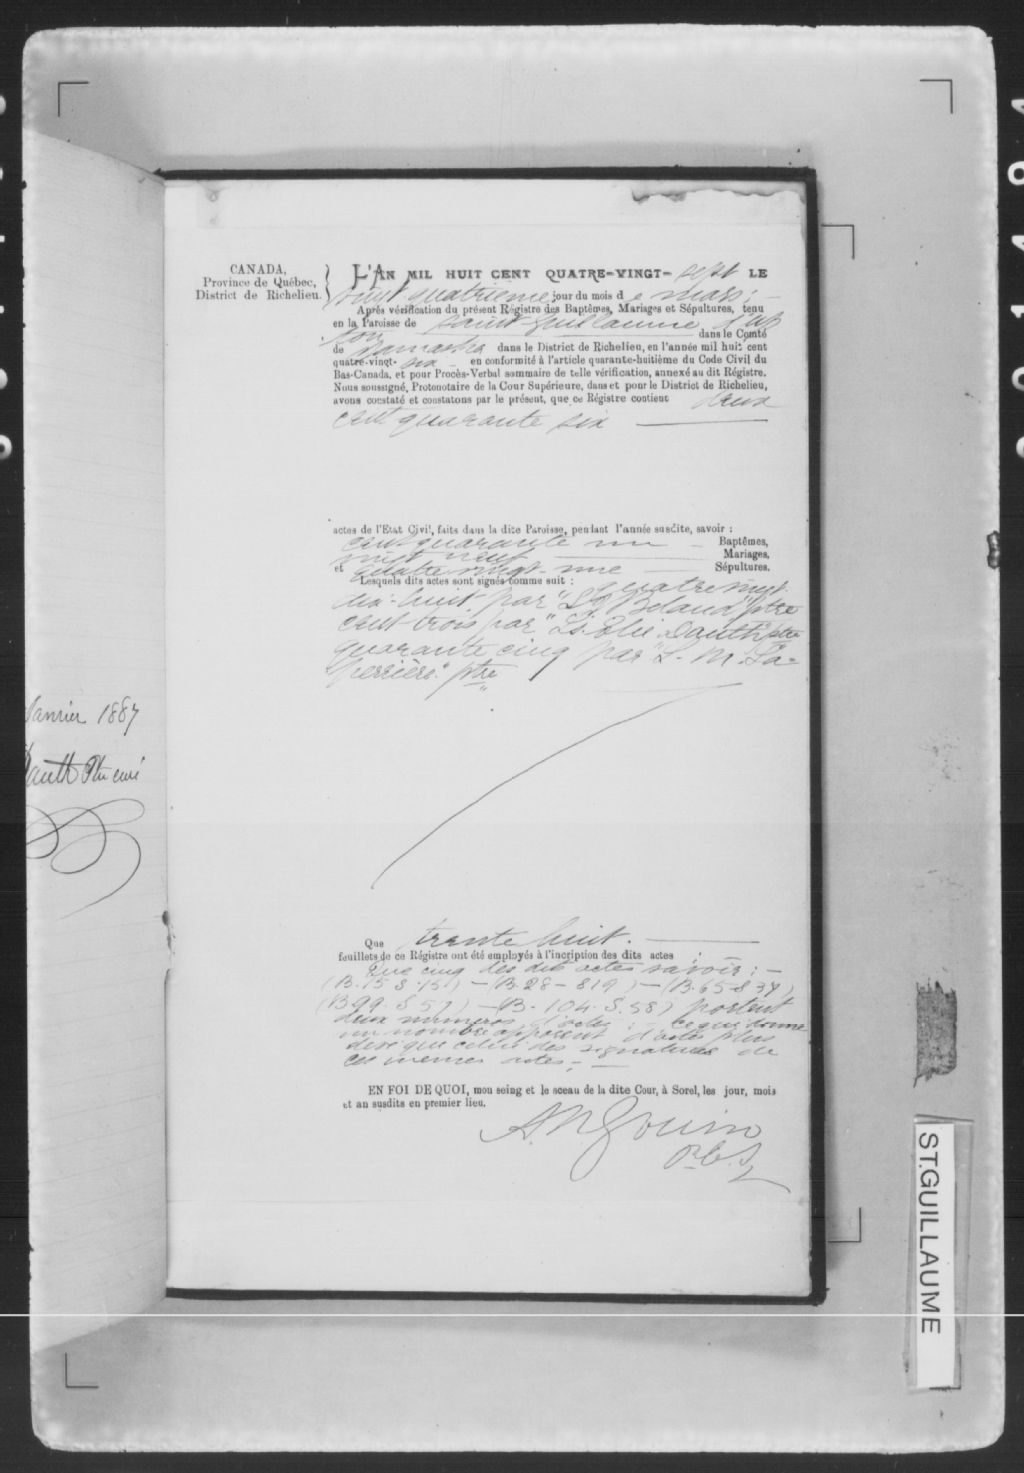 CANADA,
Province de Québec,
District de Richelieu.
L'AN MIL HUIT CENT QUATRE-VINGT- sept LE
vingt quatrième jour du mois de mars; -
Après vérification du présent Régistre des Baptêmes, Mariages et Sépultures, tenu
en la Paroisse de Saint Guillaume d'Up
ton dans le Comté
de Yamaska dans le District de Richelieu, en l'année mil huit cent
quatre-vingt- six - en conformité à l'article quarante-huitième du Code Civil du
Bas-Canada, et pour Procès-Verbal sommaire de telle vérification, annexé au dit Régistre.
Nous soussigné, Protonotaire de la Cour Supérieure, dans et pour le District de Richelieu,
avons constaté et constatons par le présent, que ce Régistre contient deux
cent quarante six
actes de l'Etat Civil, faits dans la dite Paroisse, pendant l'année susdite, savoir :
cent quarante un - Baptêmes,
vingt neuf Mariages,
et quatre vingt-une Sépultures.
Lesquels dits actes sont signés comme suit : quatre vingt
dix-huit, par " Beland" ptre
cent trois par "Ls. Elie Dauth" ptre
quarante cinq par "L. M. La-
perrière" ptre
Janvier 1887
Dauth Ptre curé
Que trente huit.
feuillets de ce Régistre ont été employés à l'incription des dits actes ;
Que cinq des dits actes savoir : -
(B. 15 S. 15) - (B. 28 - S19) - (B. 65 S 34)
(B 99. S. 57) - (B. 104. S. 58) portent
deux numéros d'actes ; ce qui donne
un nombre apparent d'actes plus
élevé que celui des signatures de
ces mêmes actes; -
EN FOI DE QUOI, mon seing et le sceau de la dite Cour, à Sorel, les jour, mois
et an susdits en premier lieu.
A. N. Gouin
P. C. S.
ST.GUILLAUME